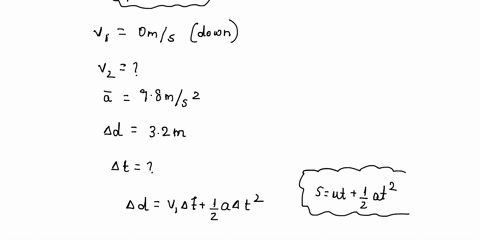 v₁ = 0m/s (down)
v₂ = ?
ā = 9.8m/s²
Δd = 3.2m
Δt = ?
Δd = v₁Δt + 1/2 aΔt²
S = ut + 1/2 at²